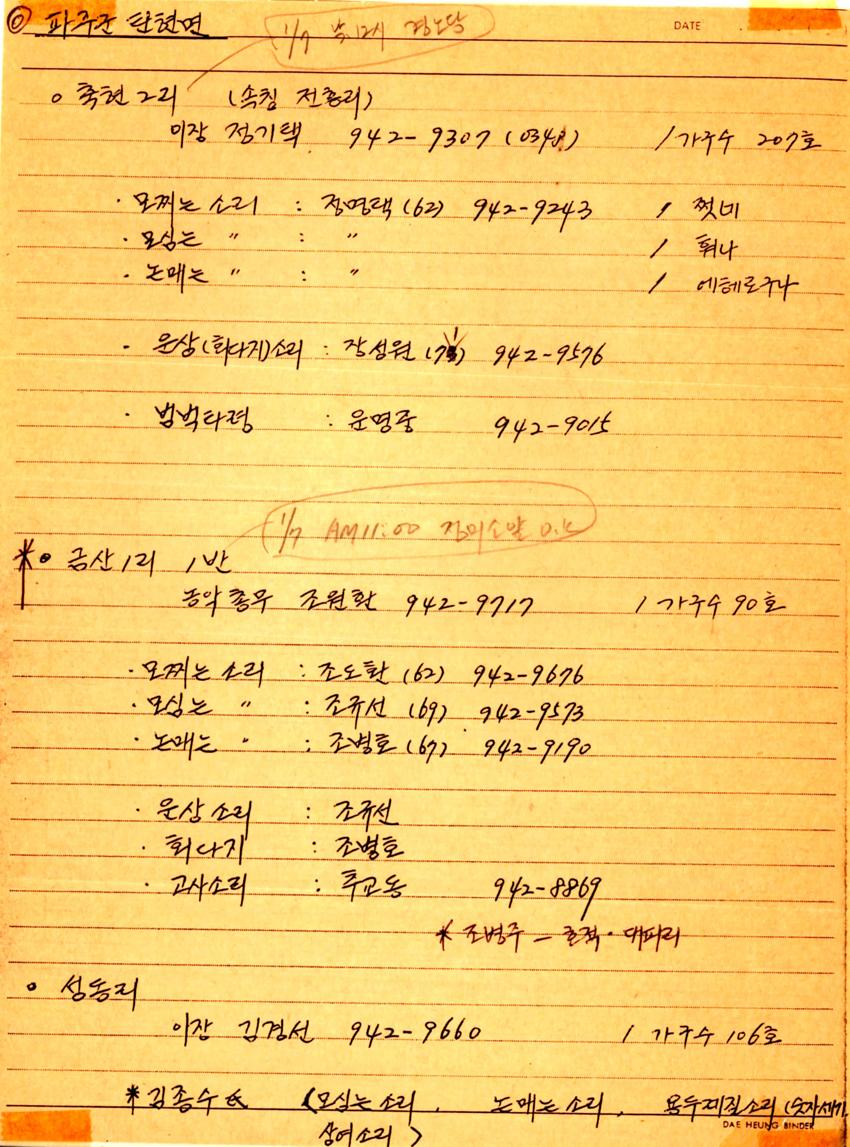 ◎ 파주군 탄현면
1/7 낮 12시 경노당
DATE
○ 축현 2리 (속칭 전촌리)
이장 정기택 942-9307 (0348) / 가구수 207호
· 모찌는 소리 : 정명택 (62) 942-9243 / 쩟네
· 모심는 〃 : 〃 / 훠나
· 논매는 〃 : 〃 / 에헤로구나
· 운상(회다지)소리 : 장성원 942-9576
· 범벅타령 : 윤명중 942-9015
1/7 AM 11:00 O.K
* ● 금산 1리 1반
농악총무 조원환 942-9717 / 가구수 90호
· 모찌는 소리 : 조도환 (62) 942-9676
· 모심는 〃 : 조규선 (69) 942-9573
· 논매는 〃 : 조병호 (67) 942-9190
· 운상소리 : 조규선
· 회다지 : 조병호
· 고사소리 : 추교동 942-8869
* 조병주 - 호적 · 대피리
○ 성동리
이장 김경선 942-9660 / 가구수 106호
* 김종수 氏 (모심는 소리, 논매는 소리, 용두레질소리 (숫자세기,
DAE HEUNG BINDER
상여소리)